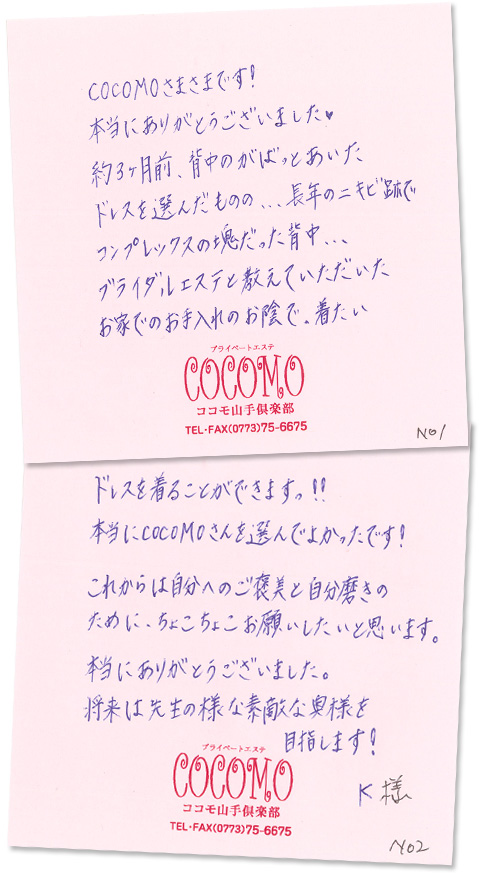 COCOMOさまさまです!
本当にありがとうございました♥
約3ヶ月前、背中のがばっとあいた
ドレスを選んだものの...長年のニキビ跡で
コンプレックスの塊だった背中...
ブライダルエステと教えていただいた
お家でのお手入れのお陰で。着たい
プライベートエステ
COCOMO
ココモ山手倶楽部
TEL・FAX(0773)75-6675
No1
ドレスを着ることができますっ!!
本当にCOCOMOさんを選んでよかったです!
これからは自分へのご褒美と自分磨きの
ために、ちょこちょこお願いしたいと思います。
本当にありがとうございました。
将来は先生の様な素敵な奥様を
目指します!
プライベートエステ
COCOMO
ココモ山手倶楽部
TEL・FAX(0773)75-6675
K様
No2